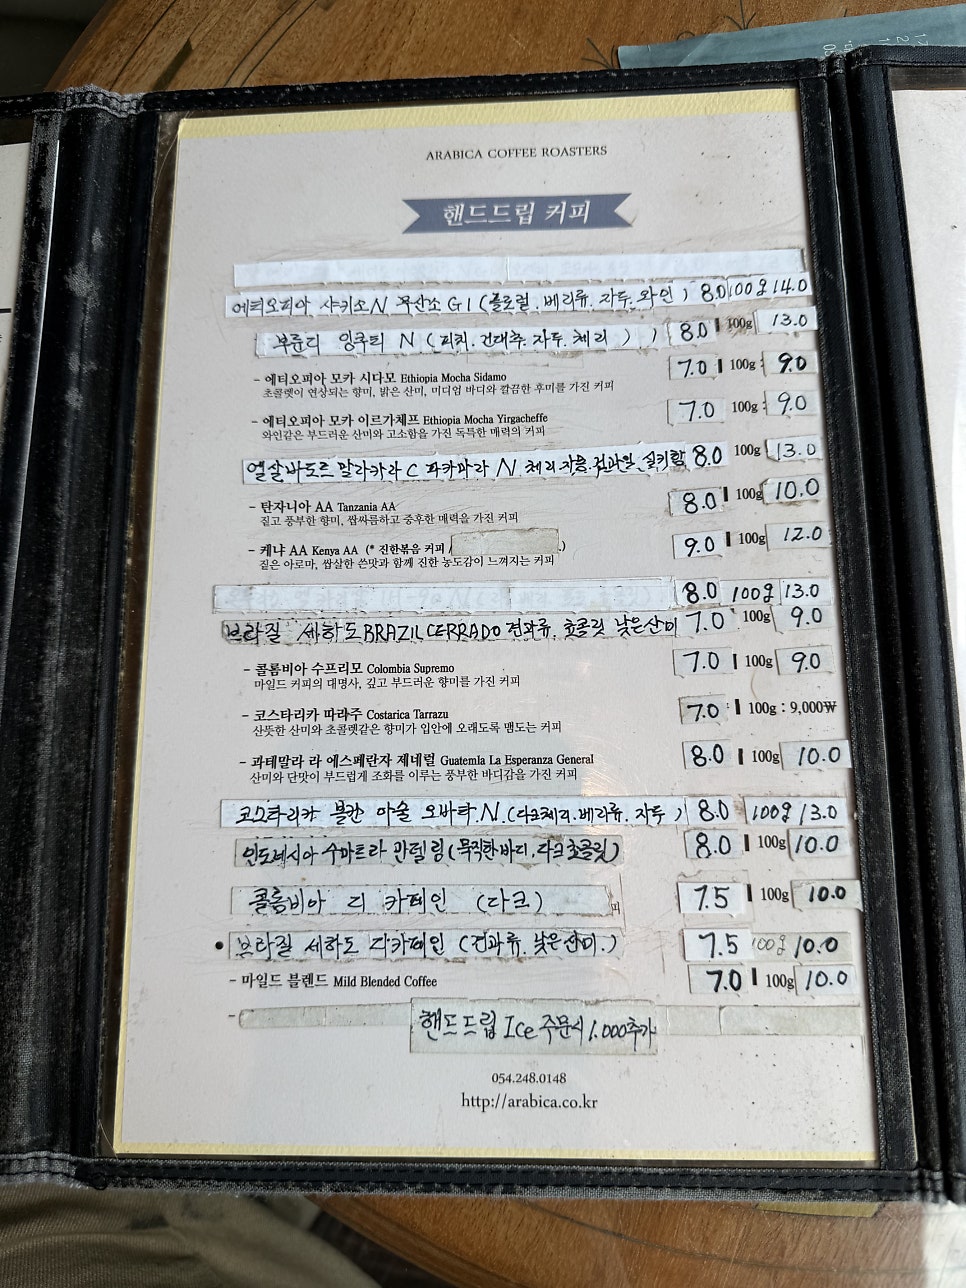 ARABICA COFFEE ROASTERS
핸드드립 커피
에티오피아 샤키소 N 무산소 G1 (플로럴. 베리류. 자두. 와인) 8.0 100g 14.0
부룬디 잉쿠티 N (피치. 건대추. 자두. 체리) 8.0 100g 13.0
- 에티오피아 모카 시다모 Ethiopia Mocha Sidamo 7.0 100g : 9.0
초콜렛이 연상되는 향미, 밝은 산미, 미디엄 바디와 깔끔한 후미를 가진 커피
- 에티오피아 모카 이르가체프 Ethiopia Mocha Yirgacheffe 7.0 100g : 9.0
와인같은 부드러운 산미와 고소함을 가진 독특한 매력의 커피
엘살바도르 말라카라 C 파카마라 N 체리 자몽. 건과일. 8.0 100g 13.0
- 탄자니아 AA Tanzania AA 8.0 100g 10.0
짙고 풍부한 향미, 쌉싸름하고 중후한 매력을 가진 커피
- 케냐 AA Kenya AA (* 진한볶음 커피 / .) 9.0 100g 12.0
짙은 아로마, 쌉살한 쓴맛과 함께 진한 농도감이 느껴지는 커피
8.0 100g 13.0
브라질 세하도 BRAZIL CERRADO 견과류. 초콜릿 낮은산미 7.0 100g 9.0
- 콜롬비아 수프리모 Colombia Supremo 7.0 100g 9.0
마일드 커피의 대명사, 깊고 부드러운 향미를 가진 커피
- 코스타리카 따라주 Costarica Tarrazu 7.0 100g : 9,000₩
산뜻한 산미와 초콜렛같은 향미가 입안에 오래도록 맴도는 커피
- 과테말라 라 에스페란자 제네럴 Guatemla La Esperanza General 8.0 100g 10.0
산미와 단맛이 부드럽게 조화를 이루는 풍부한 바디감을 가진 커피
코스타리카 볼칸 아술 오바타. N. (다크체리. 베리류. 자두) 8.0 100g 13.0
인도네시아 수마트라 만델링 (묵직한바디. 다크초콜릿) 8.0 100g 10.0
콜롬비아 디카페인 (다크) 피 7.5 100g 10.0
• 브라질 세하도 디카페인 (견과류. 낮은산미.) 7.5 100g 10.0
- 마일드 블렌드 Mild Blended Coffee 7.0 100g 10.0
- 핸드드립 Ice 주문시 1.000추가
054.248.0148
http://arabica.co.kr